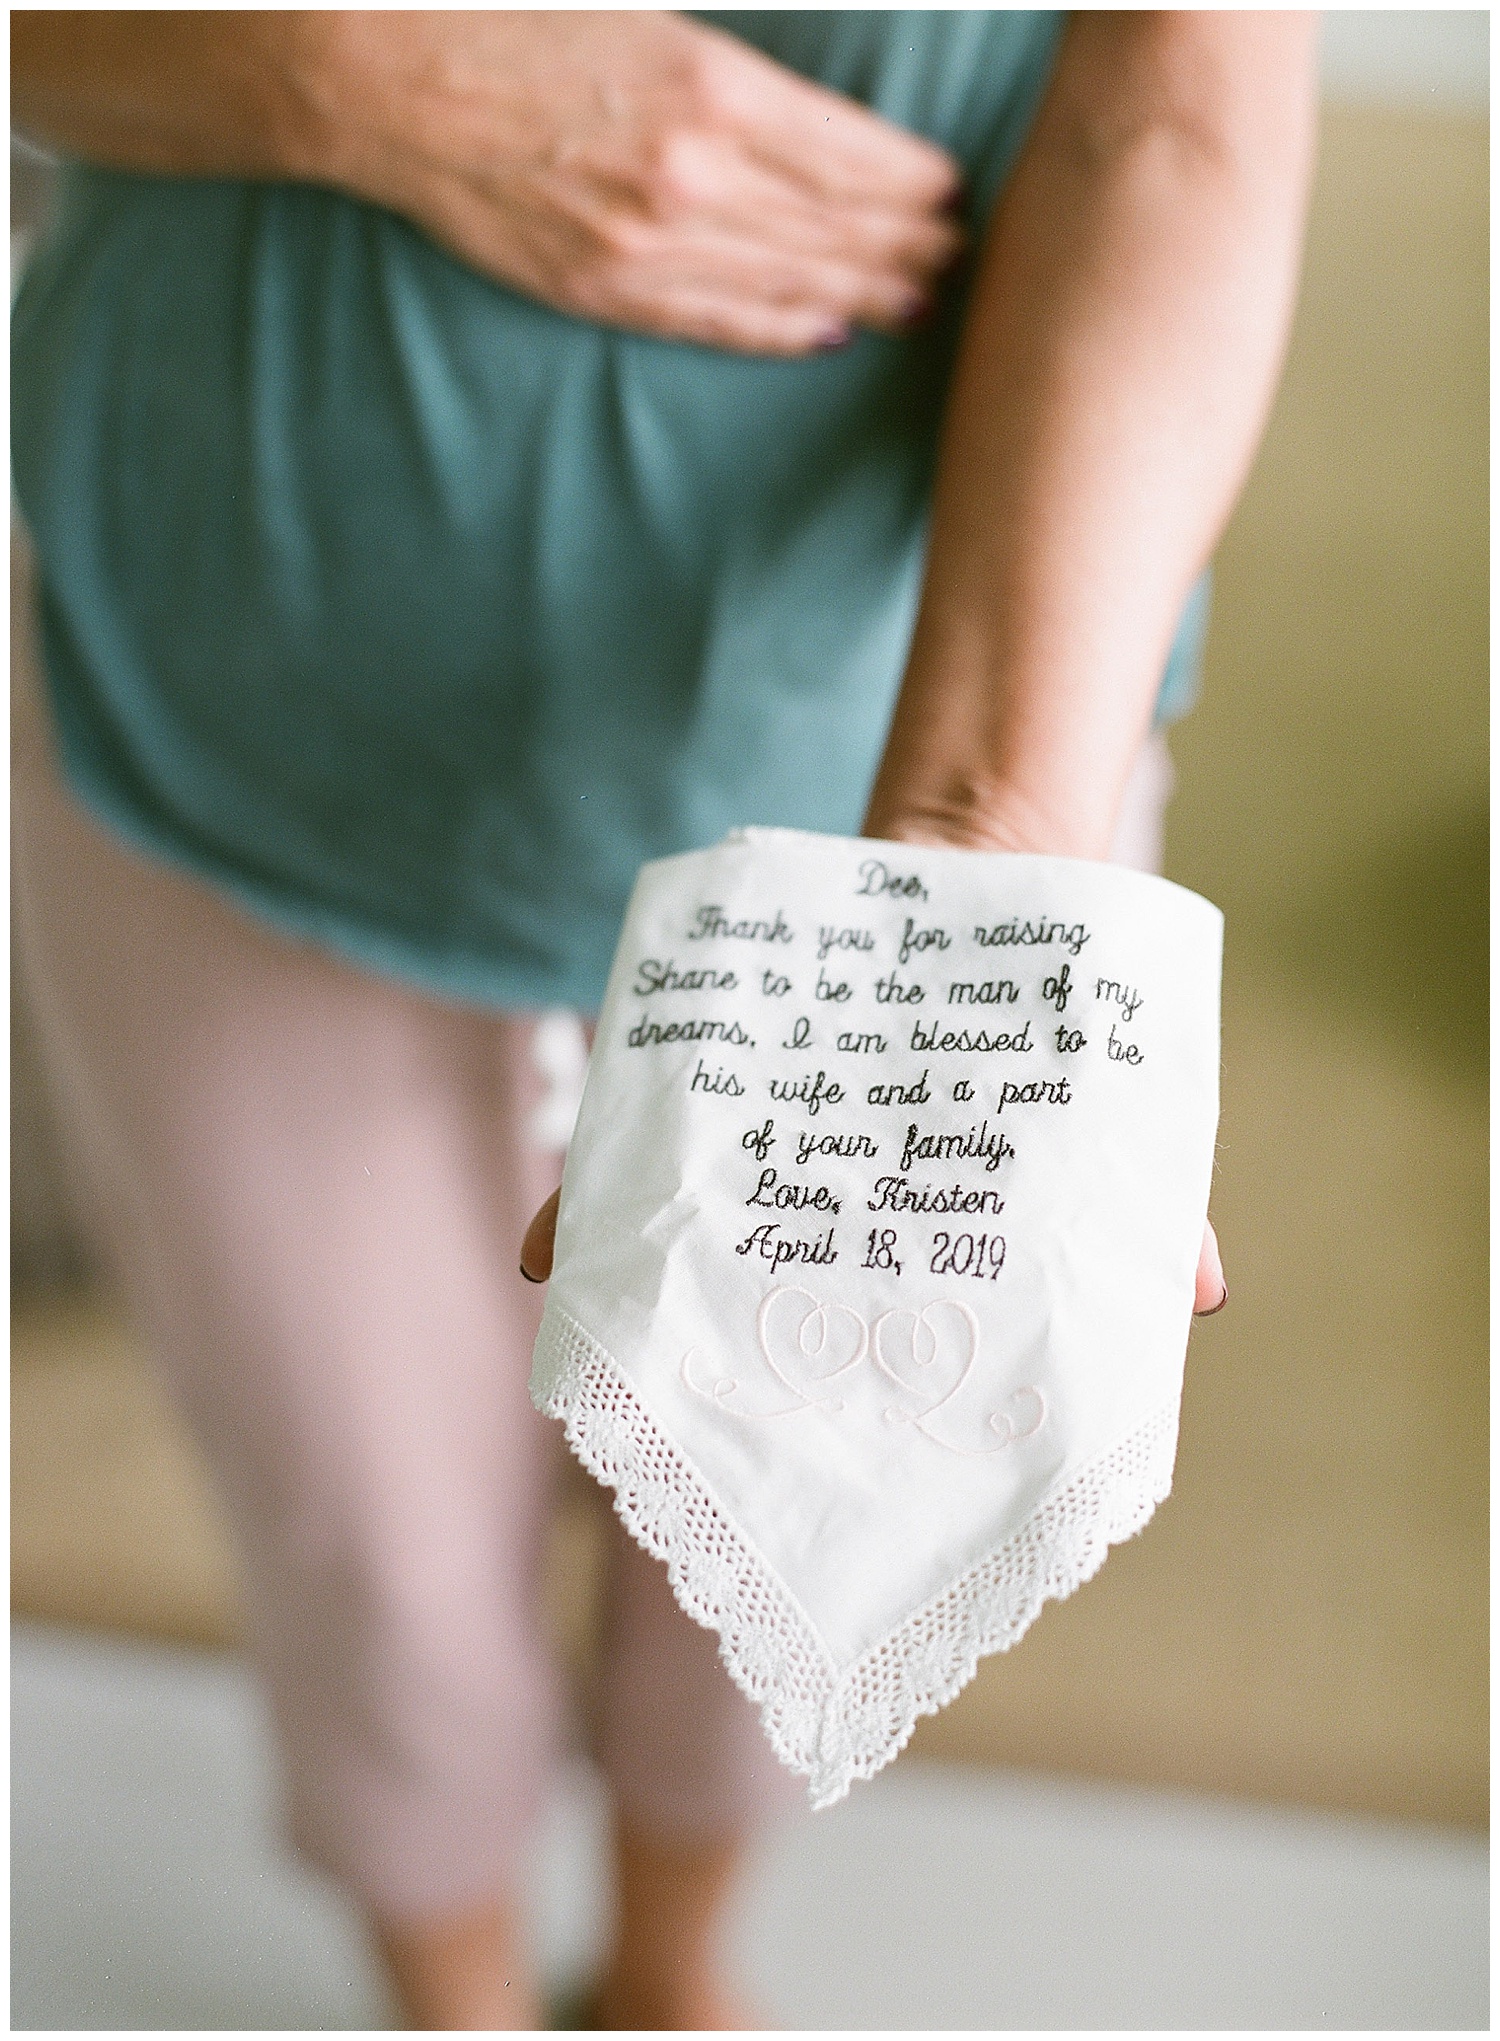 Dee,
Thank you for raising
Shane to be the man of my
dreams. I am blessed to be
his wife and a part
of your family.
Love, Kristen
April 18, 2019